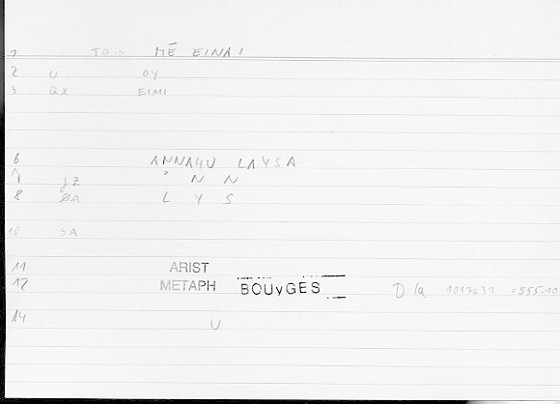 1 TO MĒ EINAI
2 U OY
3 QX EIMI
6 ANNAHU LAYSA
7 JZ ' N N
8 ØA L Y S
10 SA
11 ARIST
12 METAPH BOUyGES D 1a 1017a31 =555.10
14 U